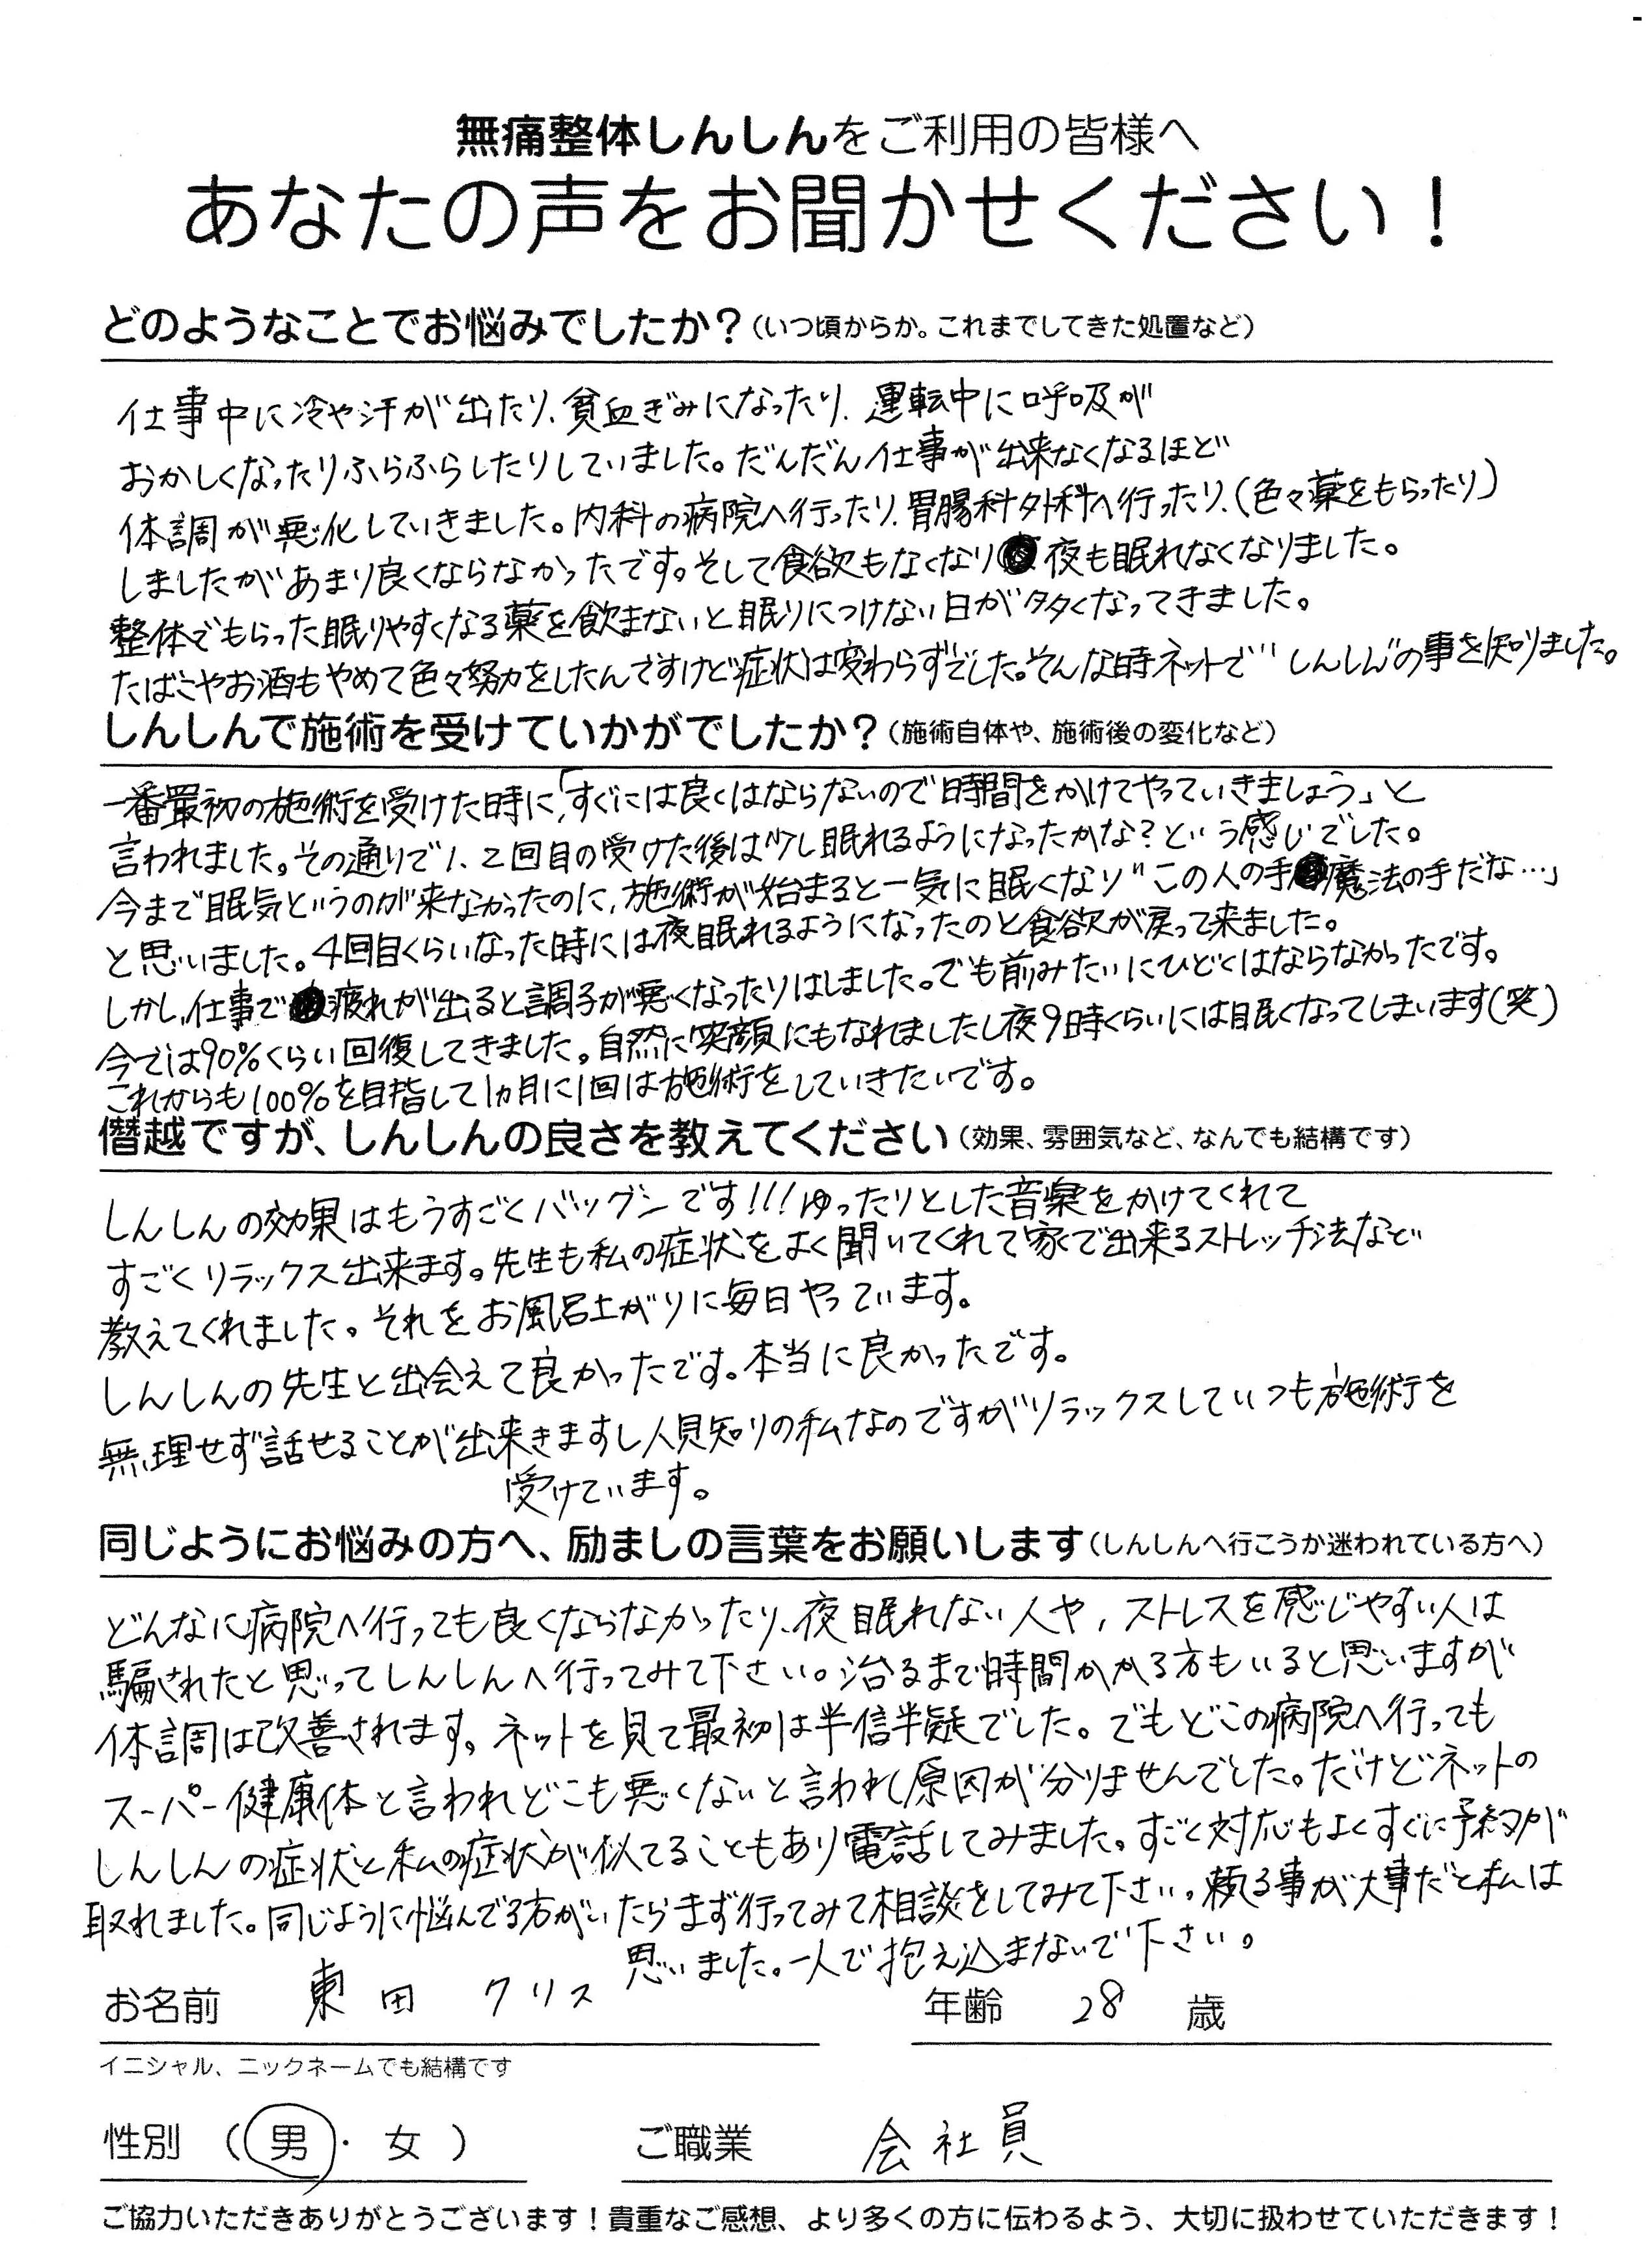 無痛整体しんしんをご利用の皆様へ
あなたの声をお聞かせください！
どのようなことでお悩みでしたか？（いつ頃からか。これまでしてきた処置など）
仕事中に冷や汗が出たり、貧血ぎみになったり、運転中に呼吸が
おかしくなったりふらふらしたりしていました。だんだん仕事が出来なくなるほど
体調が悪化していきました。内科の病院へ行ったり、胃腸科外科へ行ったり、（色々薬をもらったり）
しましたがあまり良くならなかったです。そして食欲もなくなり夜も眠れなくなりました。
整体でもらった眠りやすくなる薬を飲まないと眠りにつけない日が多くなってきました。
たばこやお酒もやめて色々努力をしたんですけど症状は変わらずでした。そんな時ネットで"しんしん"の事を知りました。
しんしんで施術を受けていかがでしたか？（施術自体や、施術後の変化など）
一番最初の施術を受けた時に、「すぐには良くはならないので時間をかけてやっていきましょう」と
言われました。その通りで1、2回目の受けた後は少し眠れるようになったかな？という感じでした。
今まで眠気というのが来なかったのに、施術が始まると一気に眠くなり"この人の手魔法の手だな…」
と思いました。4回目くらいなった時には夜眠れるようになったのと食欲が戻って来ました。
しかし、仕事で疲れが出ると調子が悪くなったりはしました。でも前みたいにひどくはならなかったです。
今では90%くらい回復してきました。自然に笑顔にもなれましたし夜9時くらいには眠くなってしまいます(笑)
これからも100%を目指して1ヵ月に1回は施術をしていきたいです。
僭越ですが、しんしんの良さを教えてください（効果、雰囲気など、なんでも結構です）
しんしんの効果はもうすごくバツグンです!!!ゆったりとした音楽をかけてくれて
すごくリラックス出来ます。先生も私の症状をよく聞いてくれて家で出来るストレッチ法など
教えてくれました。それをお風呂上がりに毎日やっています。
しんしんの先生と出会えて良かったです。本当に良かったです。
無理せず話せることが出来きますし人見知りの私なのですがリラックスしていつも施術を
受けています。
同じようにお悩みの方へ、励ましの言葉をお願いします（しんしんへ行こうか迷われている方へ）
どんなに病院へ行っても良くならなかったり、夜眠れない人や、ストレスを感じやすい人は
騙されたと思ってしんしんへ行ってみて下さい。治るまで時間かかる方もいると思いますが
体調は改善されます。ネットを見て最初は半信半疑でした。でもどこの病院へ行っても
スーパー健康体と言われどこも悪くないと言われ原因が分りませんでした。だけどネットの
しんしんの症状と私の症状が似てることもあり電話してみました。すごく対応もよくすぐに予約が
取れました。同じように悩んでる方がいたらまず行ってみて相談をしてみて下さい。頼る事が大事だと私は
思いました。一人で抱え込まないで下さい。
お名前 東田 クリス 年齢 28 歳
イニシャル、ニックネームでも結構です
性別 （男・女） ご職業 会社員
ご協力いただきありがとうございます！貴重なご感想、より多くの方に伝わるよう、大切に扱わせていただきます！